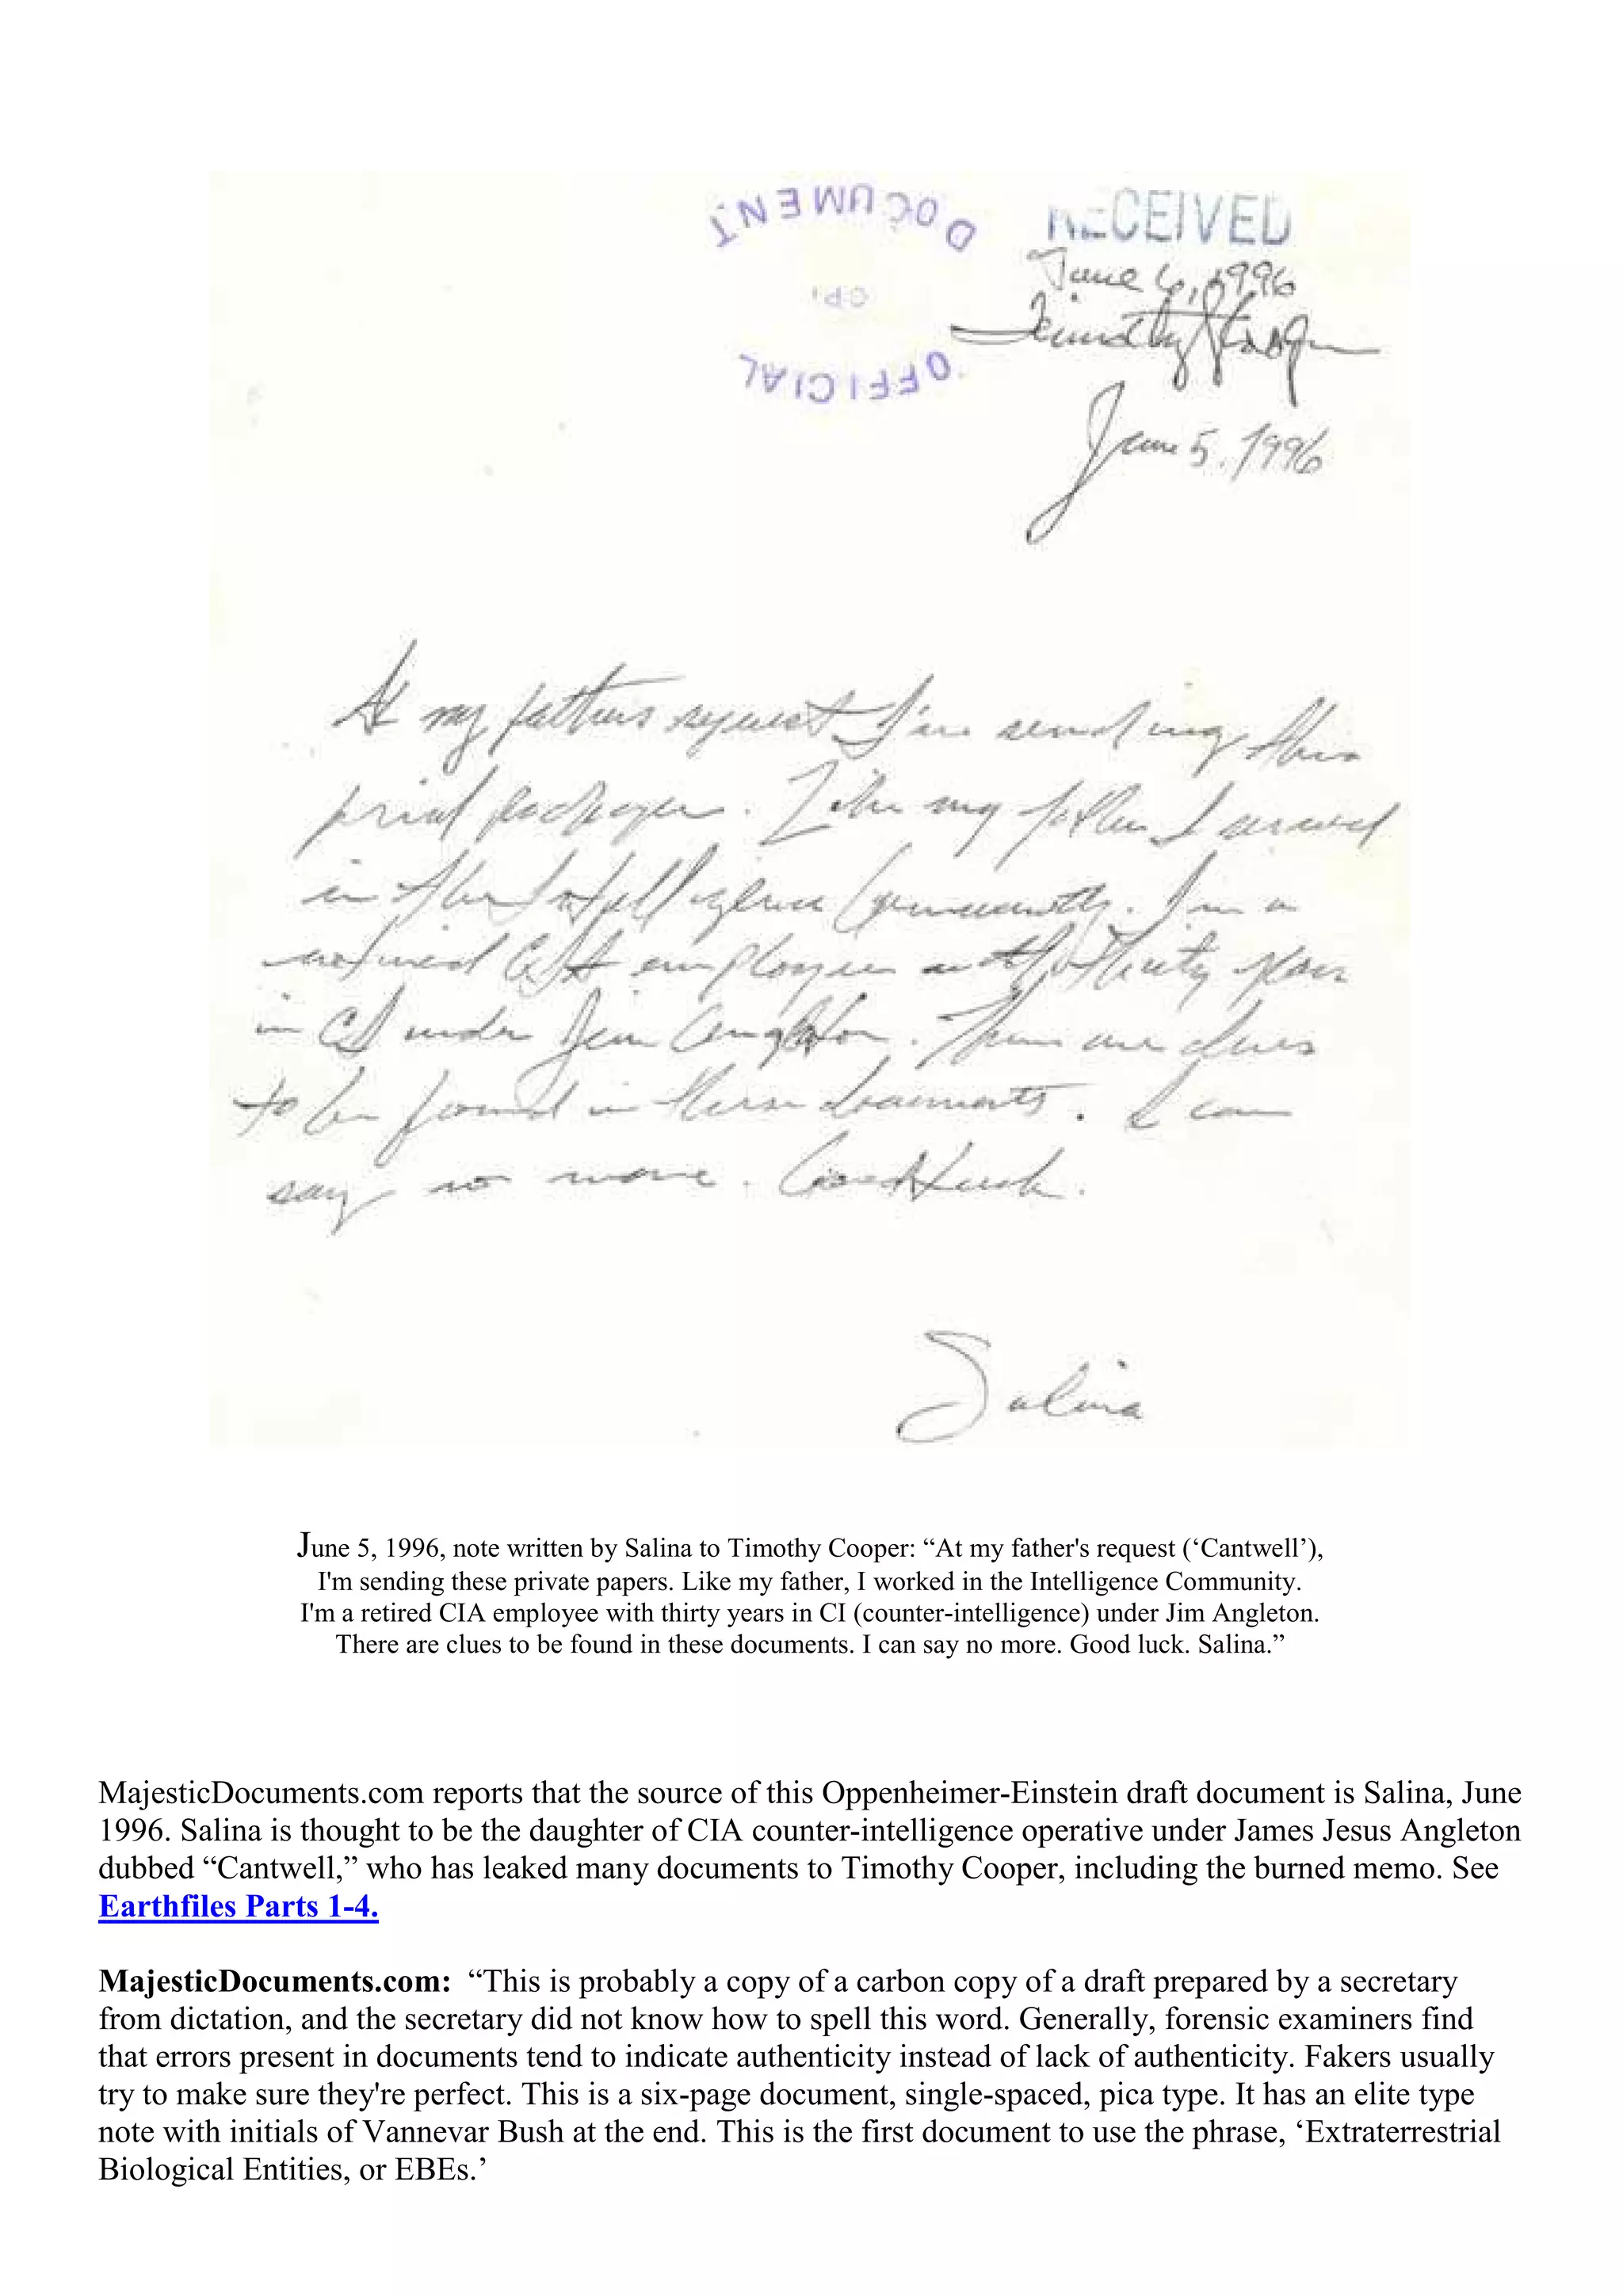 DOCUMENT
OFFICIAL
RECEIVED
June 6, 1996
Timothy Cooper
June 5, 1996
At my fathers request I'm sending this
package. Like my father I served
in the Intelligence Community. I'm a
retired CIA employee with thirty years
in CI under Jim Angleton. There are clues
to be found in these documents. I can
say no more. Good Luck.
Salina
June 5, 1996, note written by Salina to Timothy Cooper: “At my father's request (‘Cantwell’),
I'm sending these private papers. Like my father, I worked in the Intelligence Community.
I'm a retired CIA employee with thirty years in CI (counter-intelligence) under Jim Angleton.
There are clues to be found in these documents. I can say no more. Good luck. Salina.”
MajesticDocuments.com reports that the source of this Oppenheimer-Einstein draft document is Salina, June
1996. Salina is thought to be the daughter of CIA counter-intelligence operative under James Jesus Angleton
dubbed “Cantwell,” who has leaked many documents to Timothy Cooper, including the burned memo. See
Earthfiles Parts 1-4.
MajesticDocuments.com: “This is probably a copy of a carbon copy of a draft prepared by a secretary
from dictation, and the secretary did not know how to spell this word. Generally, forensic examiners find
that errors present in documents tend to indicate authenticity instead of lack of authenticity. Fakers usually
try to make sure they're perfect. This is a six-page document, single-spaced, pica type. It has an elite type
note with initials of Vannevar Bush at the end. This is the first document to use the phrase, ‘Extraterrestrial
Biological Entities, or EBEs.’